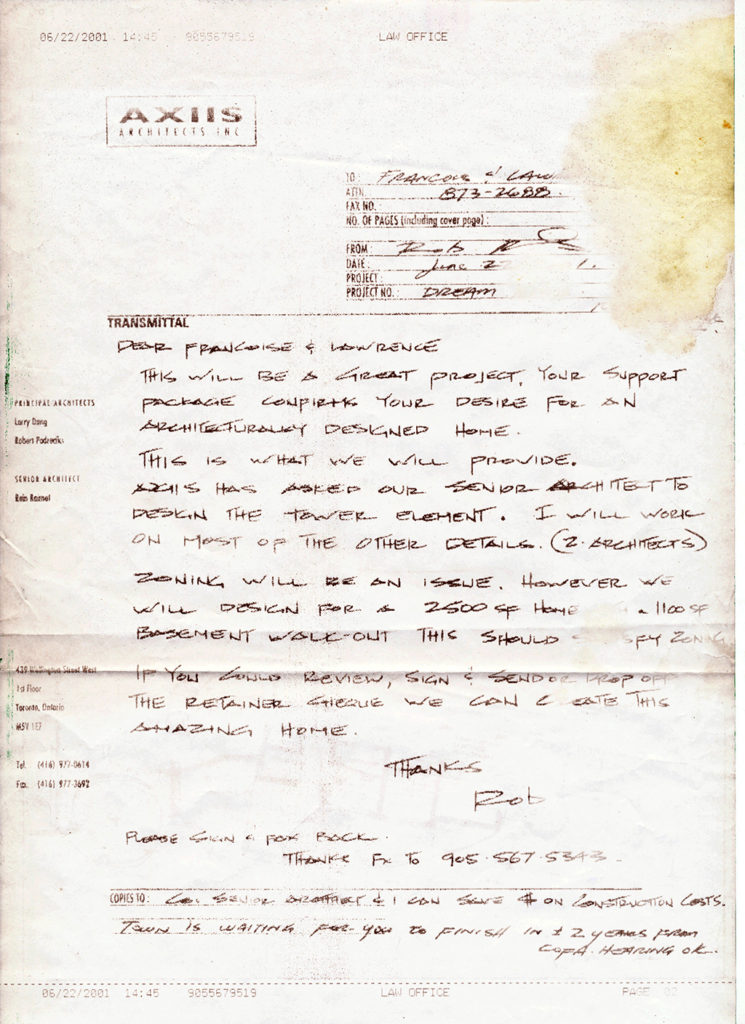 06/22/2001 14:45 9055679519 LAW OFFICE
AXIIS
ARCHITECTS INC
TO: FRANCOIS & LAW
ATTN. 873-2688.
FAX NO.:
NO. OF PAGES (including cover page):
FROM: Rob
DATE: June 2 1.
PROJECT:
PROJECT NO.: DREAM
TRANSMITTAL
DEAR FRANCOISE & LAWRENCE
THIS WILL BE A GREAT PROJECT, YOUR SUPPORT
PACKAGE CONFIRMS YOUR DESIRE FOR AN
ARCHITECTURALLY DESIGNED HOME.
THIS IS WHAT WE WILL PROVIDE.
AXIIS HAS ASKED OUR SENIOR ARCHITECT TO
DESIGN THE TOWER ELEMENT. I WILL WORK
ON MOST OF THE OTHER DETAILS. (2 ARCHITECTS)
ZONING WILL BE AN ISSUE. HOWEVER WE
WILL DESIGN FOR A 2500 SF HOME 1100 SF
BASEMENT WALK-OUT THIS SHOULD SFY ZONING
IF YOU COULD REVIEW, SIGN & SEND OR DROP OFF
THE RETAINER CHEQUE WE CAN C EATE THIS
AMAZING HOME.
THANKS
Rob
PLEASE SIGN & FAX BACK.
THANKS FX TO 905.567.5343
COPIES TO: SENIOR ARCHITECT & I CAN SAVE $ ON CONSTRUCTION COSTS.
TOWN IS WAITING FOR YOU TO FINISH IN ± 2 YEARS FROM
COFA. HEARING OK.
PRINCIPAL ARCHITECTS
Larry Dang
Robert
SENIOR ARCHITECT
439 Wellington Street West
1st Floor
Toronto, Ontario
M5V 1E7
Tel. (416) 977-0614
Fax. (416) 977-3692
06/22/2001 14:45 9055679519 LAW OFFICE PAGE 02